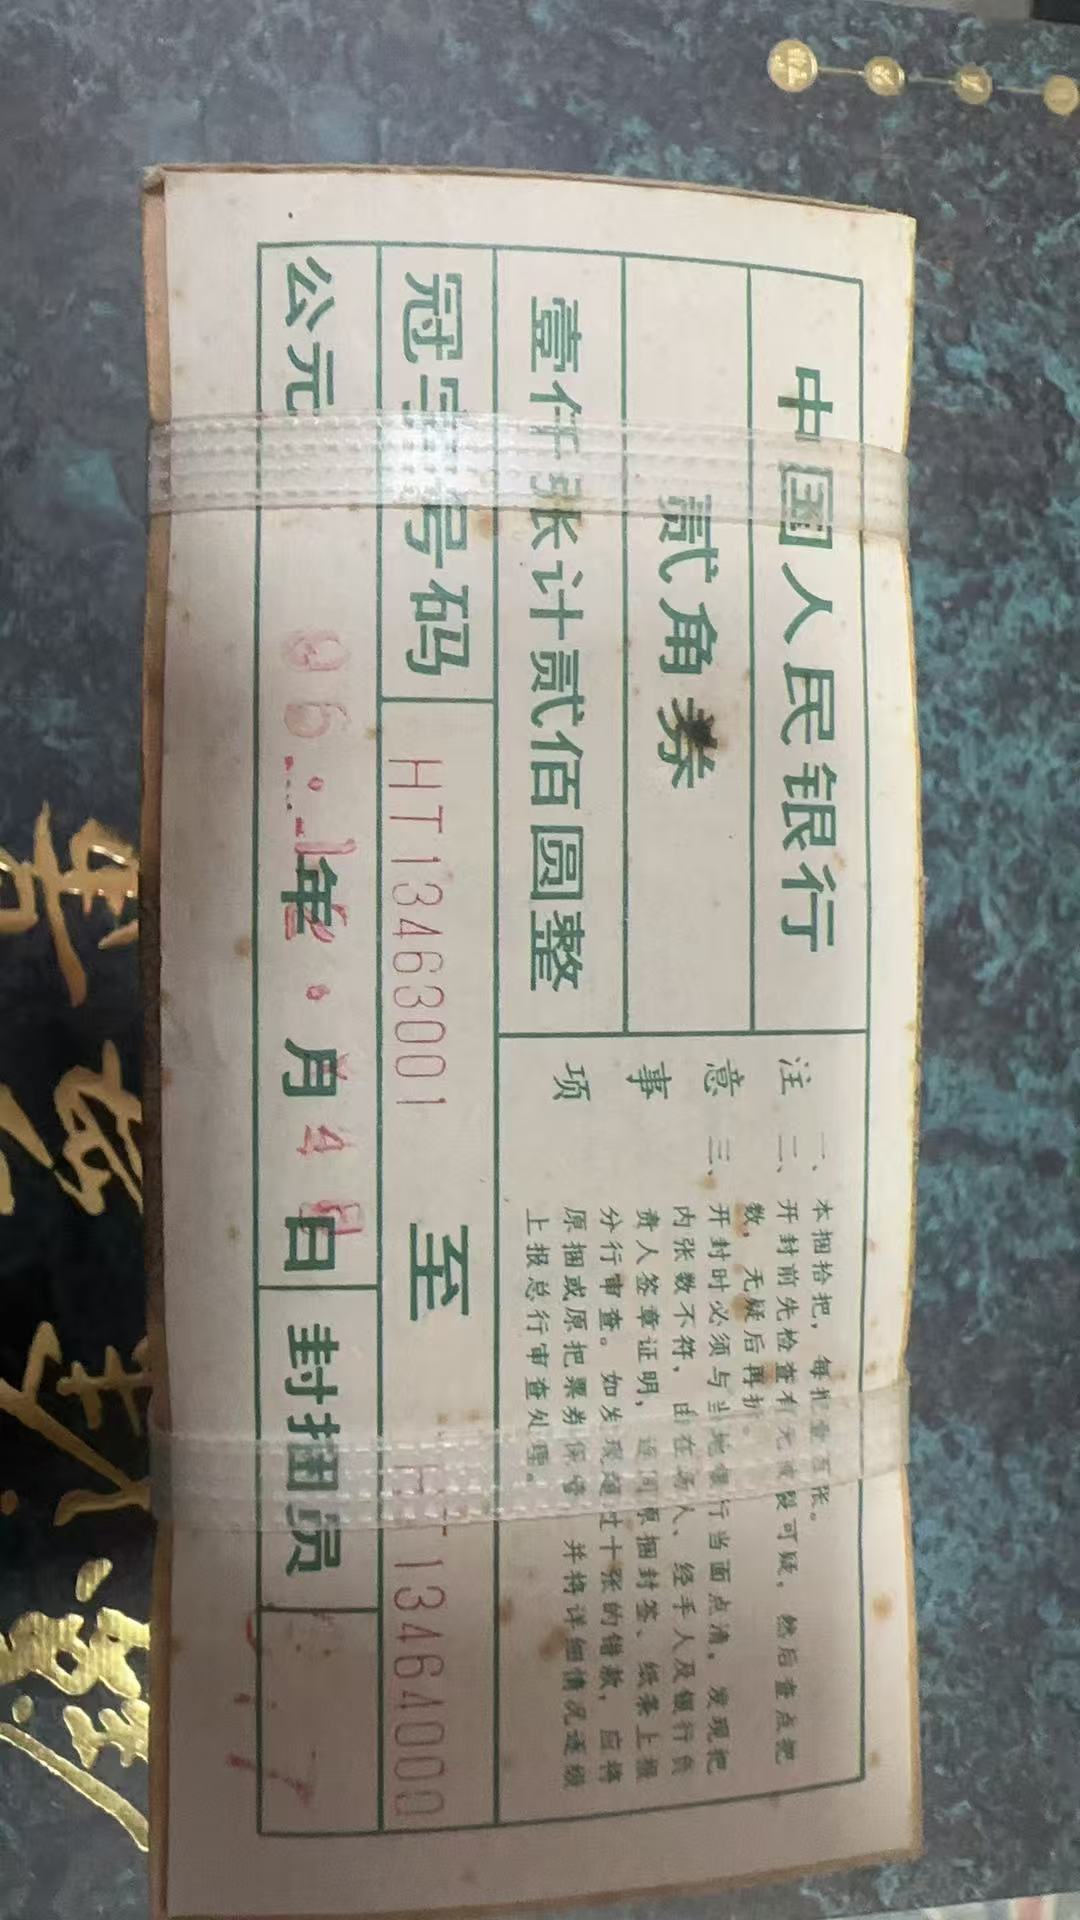 中国人民银行
贰角券
壹仟张计贰佰圆整
注意事项
一、本捆拾把，每把壹百张。
二、开封前先检查有无破裂可疑，然后查点把
数，无疑后再拆。
三、开封时必须与当地银行当面点清。发现把
内张数不符，由在场人、经手人及银行负
责人签章证明，连同原捆封签、纸条上报
分行审查。如发现超过十张的错款，应将
原捆或原把票券保管，并将详细情况逐级
上报总行审查处理。
冠字号码 HT13463001 至 HT13464000
公元 年 月 4 日 封捆员